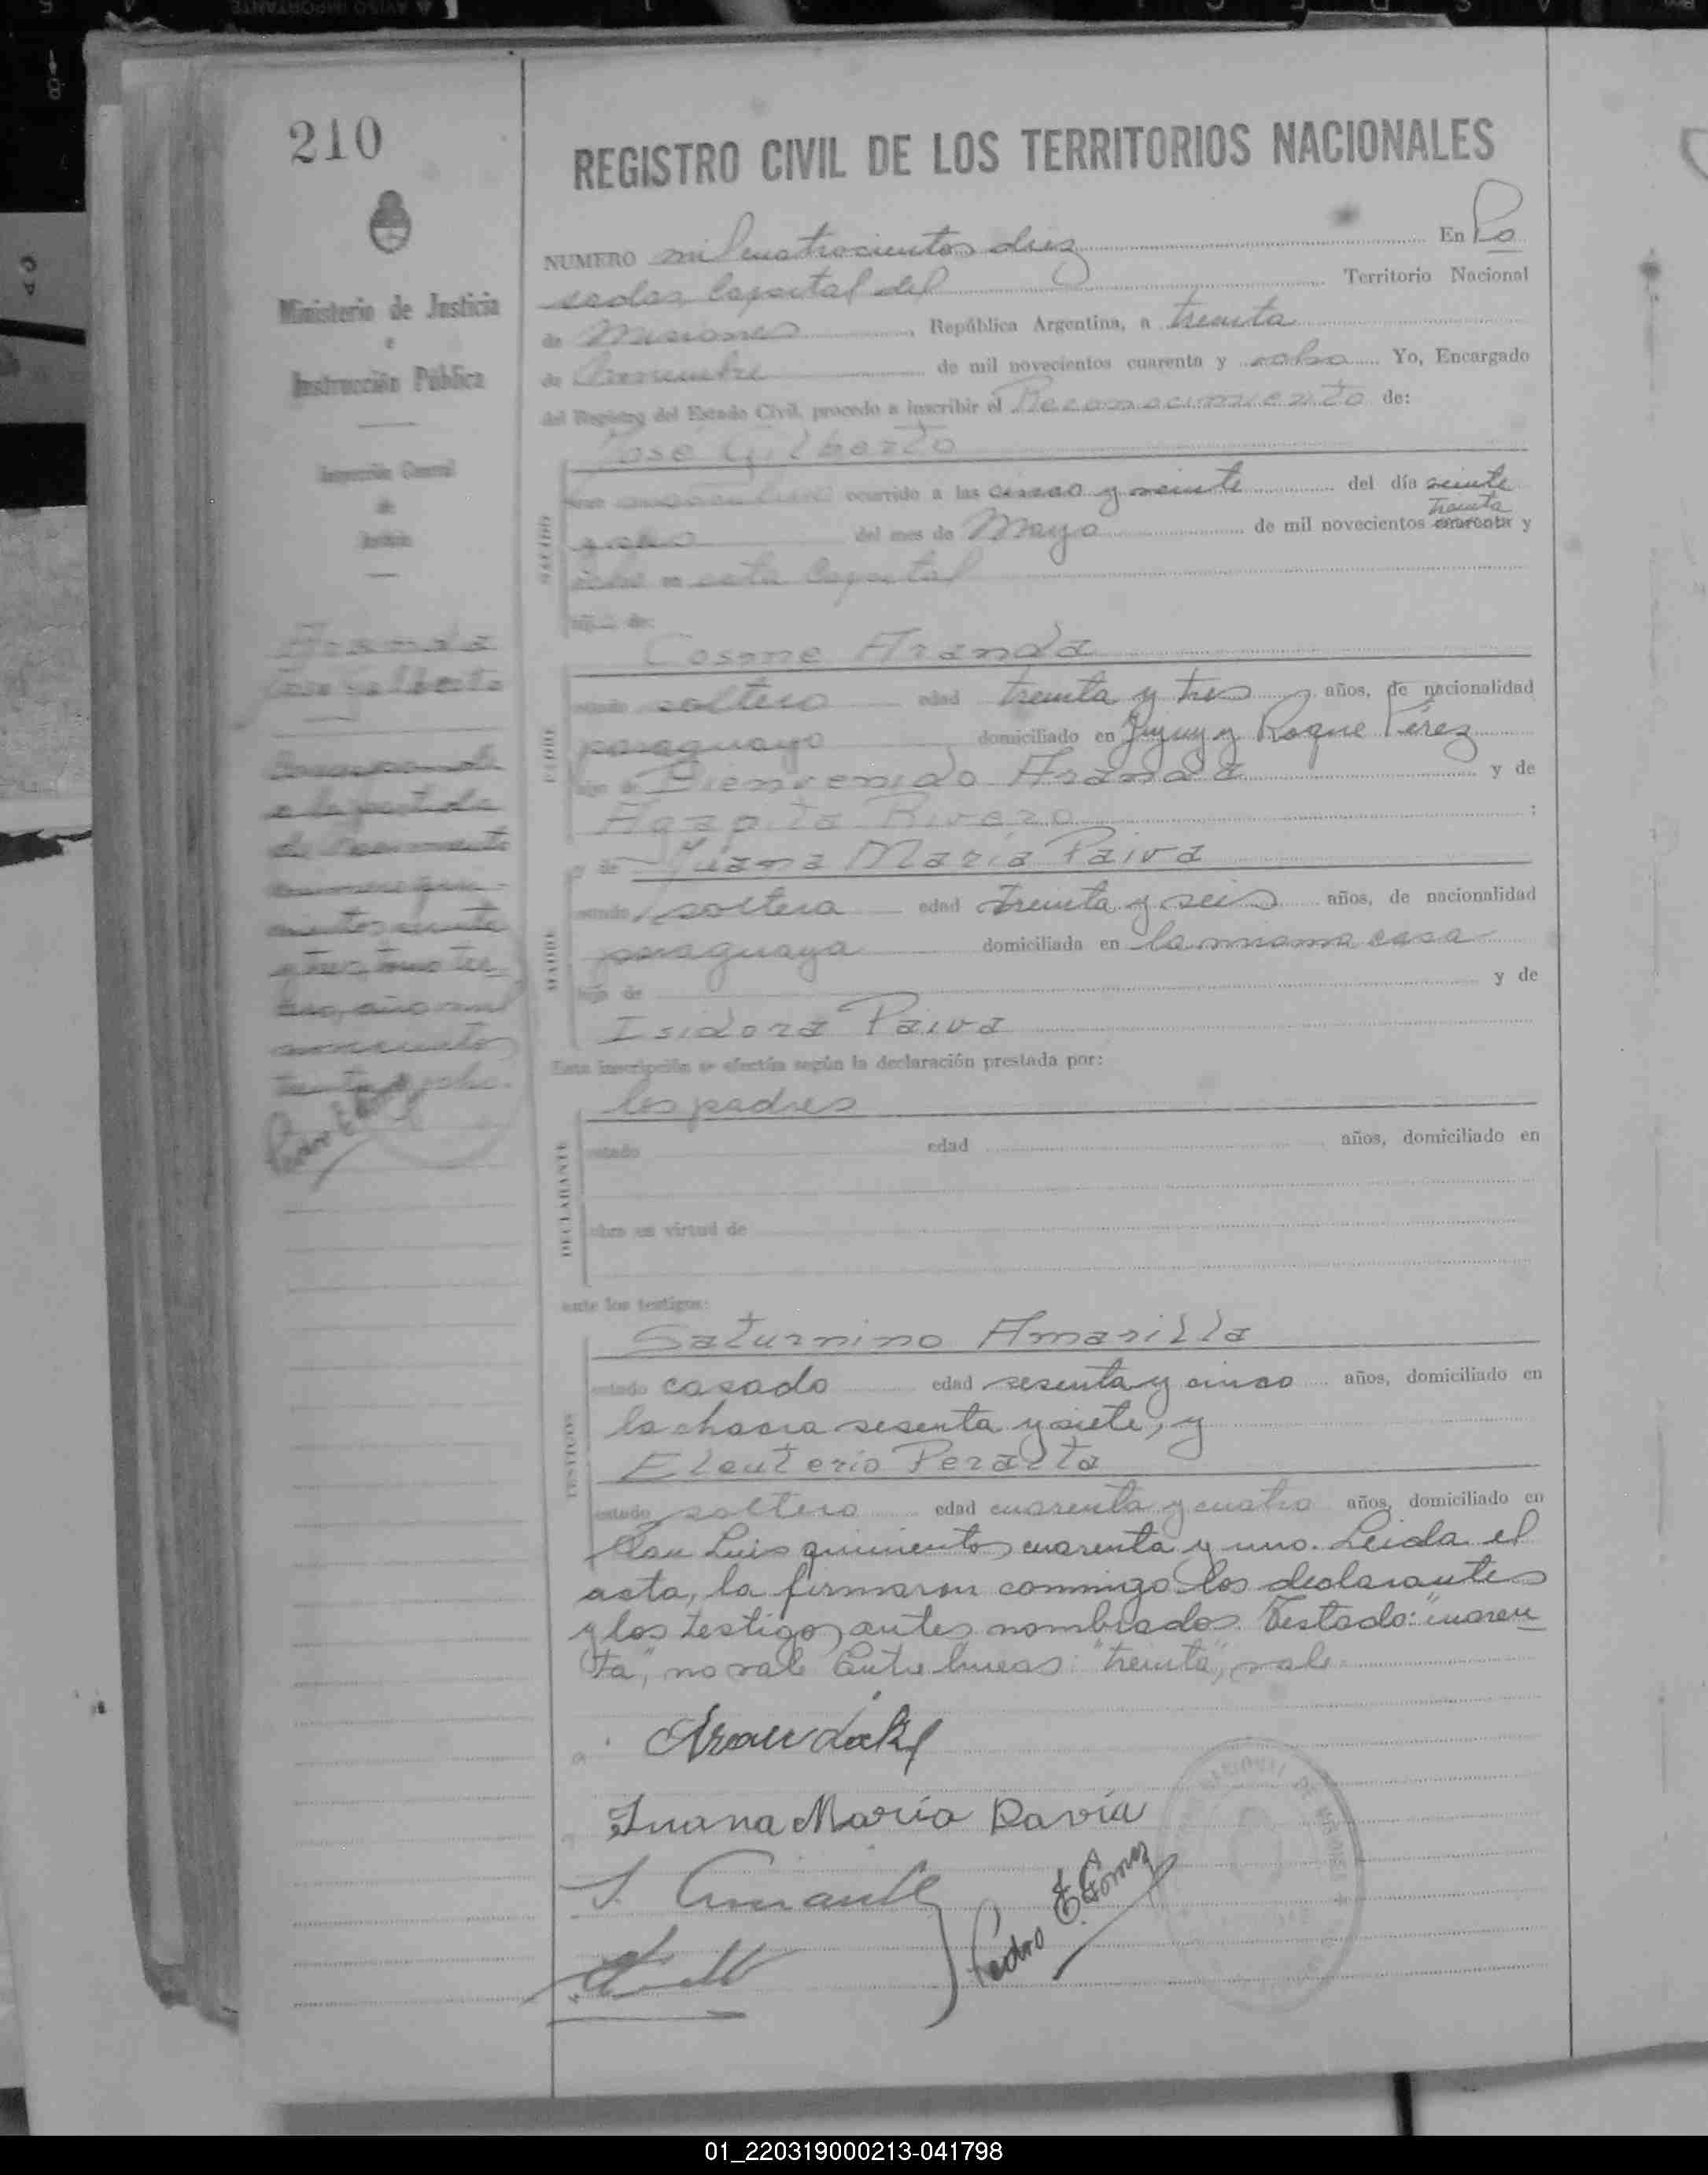 210
REGISTRO CIVIL DE LOS TERRITORIOS NACIONALES
Ministerio de Justicia
e
Instrucción Pública
Inspección General
de
Justicia
NUMERO mil cuatrocientos diez En Po
sadas, Capital del Territorio Nacional
de Misiones, República Argentina, a treinta
de de mil novecientos cuarenta y ocho Yo, Encargado
del Registro del Estado Civil, procedo a inscribir el Reconocimiento de:
José Gilberto
NACIDO
sexo masculino ocurrido a las cinco y veinte del día veinte
treinta
y ocho del mes de Mayo de mil novecientos cuarenta y
ocho en esta Capital
hijo de:
Aranda
José Gilberto
Corresponde
a la partida
de nacimiento
número quinientos
y tres, tomo
año mil
novecientos
treinta y ocho.
PADRE
Cosme Aranda
estado soltero edad treinta y tres años, de nacionalidad
paraguayo domiciliado en Jujuy y Roque Pérez
hijo de Bienvenido Aranda y de
Agapita Rivero ;
MADRE
y de Juana María Paiva
estado soltera edad treinta y seis años, de nacionalidad
paraguaya domiciliada en la misma casa
hija de y de
Isidora Paiva
Esta inscripción se efectúa según la declaración prestada por:
DECLARANTE
los padres
estado edad años, domiciliado en
obra en virtud de
ante los testigos:
TESTIGOS
Saturnino Amarilla
estado casado edad sesenta y cinco años, domiciliado en
la chacra sesenta y siete, y
Eleuterio Peralta
estado soltero edad cuarenta y cuatro años, domiciliado en
San Luis quinientos cuarenta y uno. Leida el
acta, la firmaron conmigo los declarantes
y los testigos antes nombrados. Testado: "cuaren
ta", no vale. Entre lineas: "treinta", vale.
Juana María Pavía
Pedro E. Gómez
01_220319000213-041798